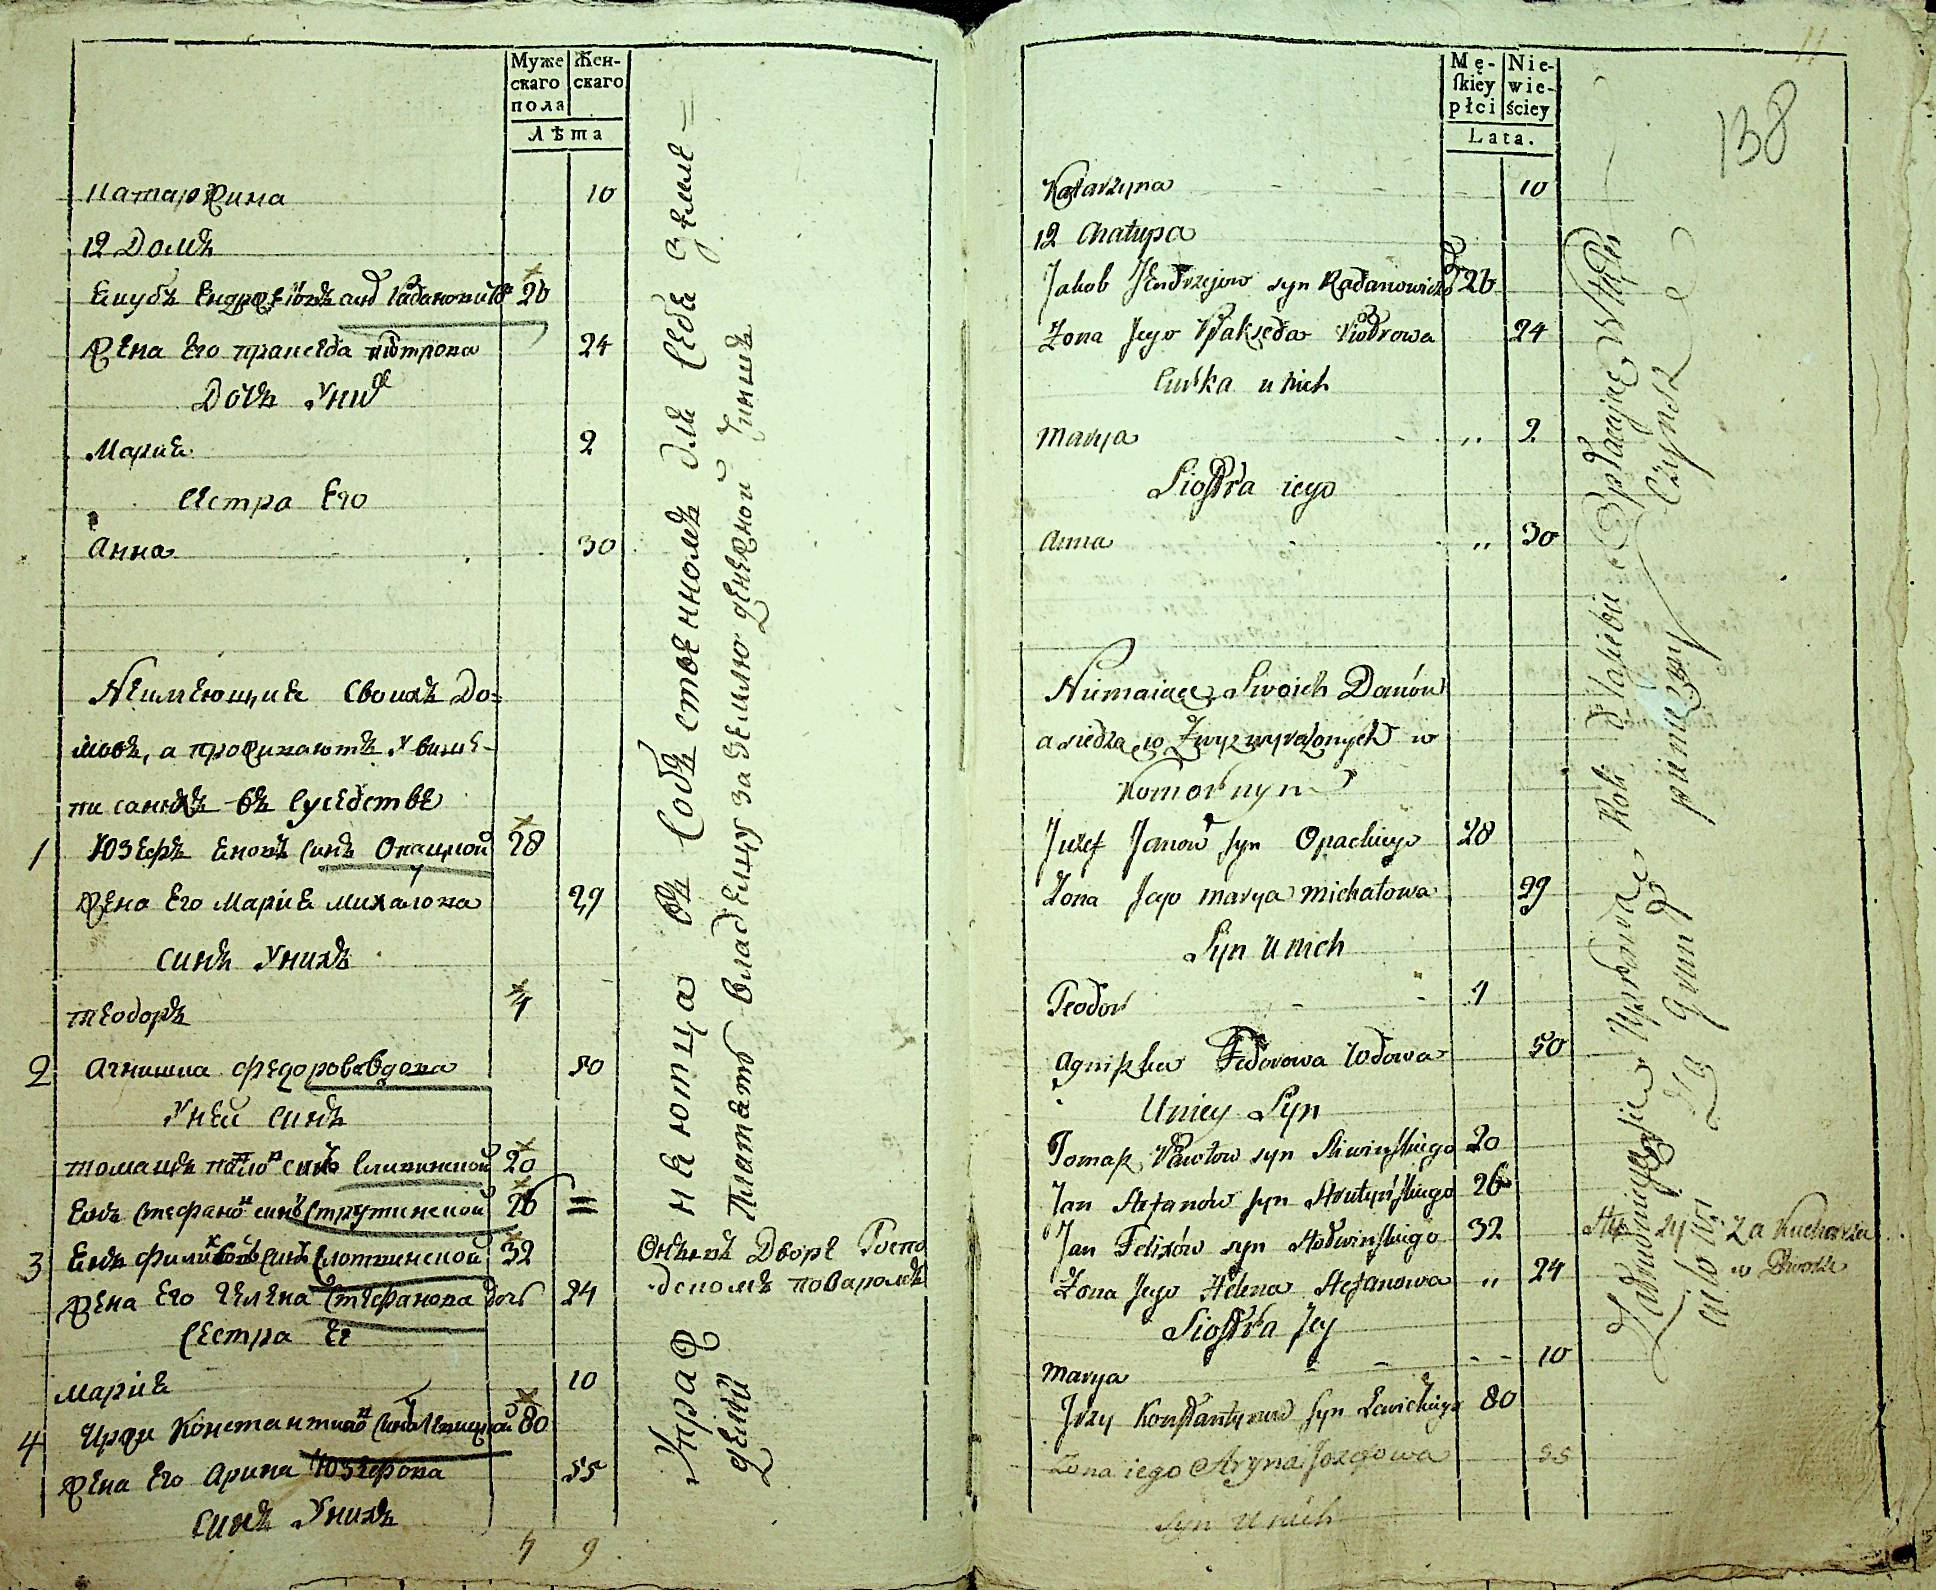 Муже
скаго
пола
Жен-
скаго
Лѣта
Катаржина 10
12 Домъ
Якубъ Ендржеіовъ синъ Радановичъ 26
Жена Его Пракседа Піотрова 24
Дочь Уних
Марія 2
Сестра Его
Анна 30
Неимеющия Своихъ До=
мовъ, а проживаютъ У више-
писанихъ въ Суседстве
1 Юзефъ Яновъ Синъ Опацкой 28
Жена Его Марія Михалова 29
Синъ Унихъ
Теодоръ 4
2 Агнишка Федорова Вдова 50
Уней Синъ
Томашъ Павлов синъ Сливинской 20
Янъ Стефанов синъ Струтинской 26
3 Янъ Филиксов Синъ Слотвинской 32
Жена Его Гелена Стефанова дочь 24
Сестра Ее
Марія 10
4 Иржи Константинов Синъ Левицкой 80
Жена Его Арина Юзефова 55
Синъ Унихъ
4 9
Упражняются въ Собственномъ для Себя земле=
делии Платятъ владелцу за землю денежной Чиншъ
Онъ въ Дворе Госпо
дскомъ поваромъ
11
138
Mę-
skiéy
płci
Nie-
wie-
ściey
Lata.
Katarzyna 10
12 Chałupa
Jakob Jendrzejow syn Radanowicz 26
Żona Jego Prakseda Piotrowa 24
Curka u nich
Marya ,, 2
Siostra iego
Anna ,, 30
Niemaiące Swoich Domów
a siedzą w Zwyz wyrażonych w
Komornym
Juzef Janow syn Opackiego 28
Żona Jego Marya Michałowa 29
Syn U nich
Teodor 4
Agniszka Fedorowa Wdowa 50
U niey Syn
Tomasz Pawłow syn Sliwinskiego 20
Jan Stefanów syn Strutyńskiego 26
Jan Felixów syn Słotwinskiego 32
Żona Jego Helena Stefanowa ,, 24
Siostra Jey
Marya 10
Jrzy Konstantynow syn Lewickiego 80
Zona iego Aryna Jozefowa 55
Syn U nich
Zatrudniaią się Uprawą Roli dla siebie Opłacaiąc
Czynsz pienięzny
za Kucharza
w Dworze